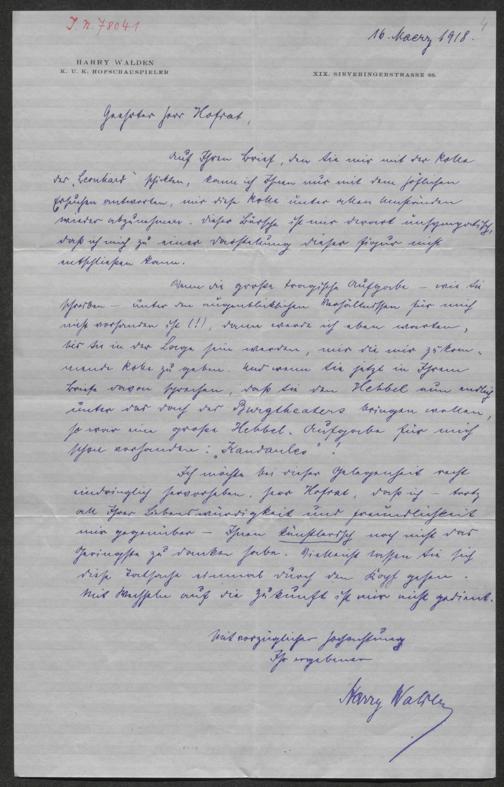 J. N. 78041
4
16. Maerz 1918.
HARRY WALDEN
K. U. K. HOFSCHAUSPIELER
XIX. SIEVERINGERSTRASSE 66.
Geehrter Herr Hofrat,
Auf Ihren Brief, den Sie mir mit der Rolle
des „Leonhard" schickten, kann ich Ihnen nur mit dem höflichen
Ersuchen antworten, mir diese Rolle unter allen Umständen
wieder abzunehmen. Dieser Bursche ist mir derart unsympatisch,
daß ich mich zu einer Darstellung dieser Figur nicht
entschließen kann.
Wenn die große tragische Aufgabe – wie Sie
schreiben – unter den augenblicklichen Verhältnissen für mich
nicht vorhanden ist (!!), dann werde ich eben warten,
bis Sie in der Lage sein werden, mir die mir zukom-
mende Rolle zu geben. Und wenn Sie jetzt in Ihrem
Briefe davon sprechen, daß Sie den Hebbel nun endlich
unter das Dach des Burgtheaters bringen wollen,
so war eine große Hebbel-Aufgabe für mich
schon vorhanden: „Kandaules"!
Ich möchte bei dieser Gelegenheit recht
eindringlich hervorheben, Herr Hofrat, daß ich – trotz
all Ihrer Liebenswürdigkeit und Freundlichkeit
mir gegenüber – Ihnen künstlerisch noch nicht das
Geringste zu danken habe. Vielleicht lassen Sie sich
diese Tatsache einmal durch den Kopf gehen.
Mit Wechseln auf die Zukunft ist mir nicht gedient.
Mit vorzüglicher Hochachtung
Ihr ergebener
Harry Walden